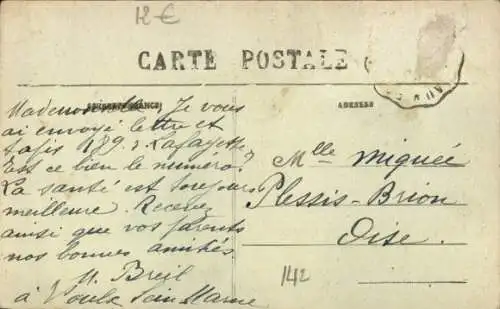 12 €
CARTE POSTALE
CORRESPONDANCE
ADRESSE
Mademoiselle, Je vous
ai envoyé lettre et
189 r. Lafayette
Est ce bien le numéro?
La santé est toujours
meilleure. Recevez
ainsi que vos parents
nos bonnes amitiés
M. Breil
à Voulx Seine Marne
Mlle Miquée
Plessis-Brion
Oise.
142